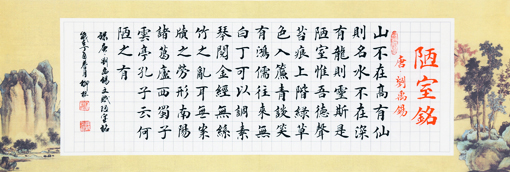 陋室銘
唐 劉禹錫
山不在高有仙
則名水不在深
有龍則靈斯是
陋室惟吾德馨
苔痕上階綠草
色入簾青談笑
有鴻儒往來無
白丁可以調素
琴閱金經無絲
竹之亂耳無案
牘之勞形南陽
諸葛廬西蜀子
雲亭孔子云何
陋之有
錄唐劉禹錫陋室銘